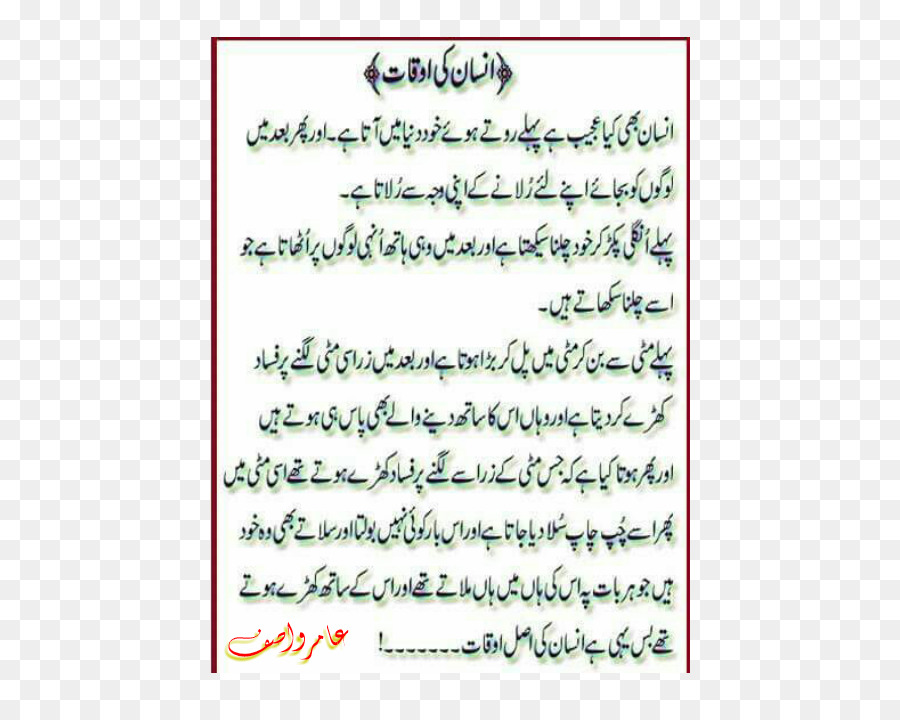 ﴿انسان کی اوقات﴾
انسان بھی کیا عجیب ہے پہلے روتے ہوئے خود دنیا میں آتا ہے۔ اور پھر بعد میں
لوگوں کو بجائے اپنے لئے رُلانے کے اپنی وجہ سے رُلاتا ہے۔
پہلے اُنگلی پکڑ کر خود چلنا سیکھتا ہے اور بعد میں وہی ہاتھ اُنہی لوگوں پر اُٹھاتا ہے جو
اسے چلنا سکھاتے ہیں۔
پہلے مٹی سے بن کر مٹی میں پل کر بڑا ہوتا ہے اور بعد میں زرا سی مٹی لگنے پر فساد
کھڑے کر دیتا ہے اور وہاں اس کا ساتھ دینے والے بھی پاس ہی ہوتے ہیں
اور پھر ہوتا کیا ہے کہ جس مٹی کے زرا سے لگنے پر فساد کھڑے ہوتے تھے اسی مٹی میں
پھر اسے چُپ چاپ سُلا دیا جاتا ہے اور اس بار کوئی نہیں بولتا اور سلاتے بھی وہ خود
ہیں جو ہر بات پہ اس کی ہاں میں ہاں ملاتے تھے اور اس کے ساتھ کھڑے ہوتے
تھے بس یہی ہے انسان کی اصل اوقات۔۔۔۔۔۔۔!
عامر واصف